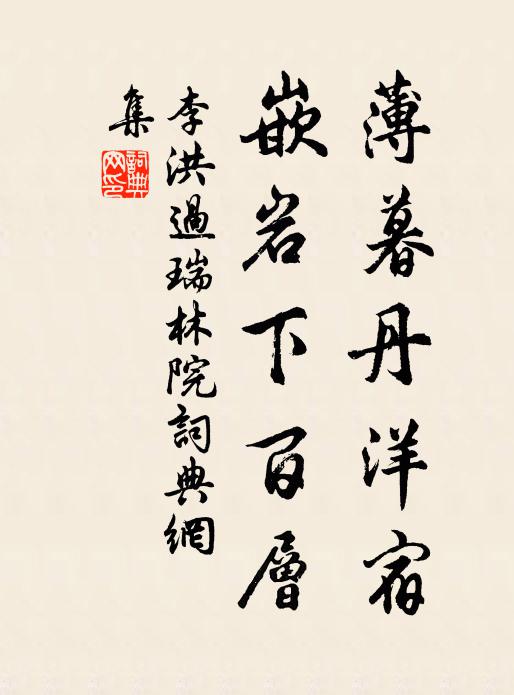 薄暮丹洋宿
嵌岩下百層
李洪過瑞林院詞典網
集
詞典网印